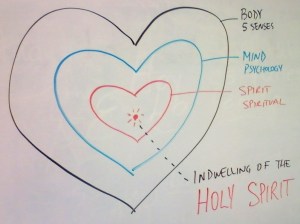 BODY
5 SENSES
MIND
PSYCHOLOGY
SPIRIT
SPIRITUAL
INDWELLING OF THE
HOLY SPIRIT